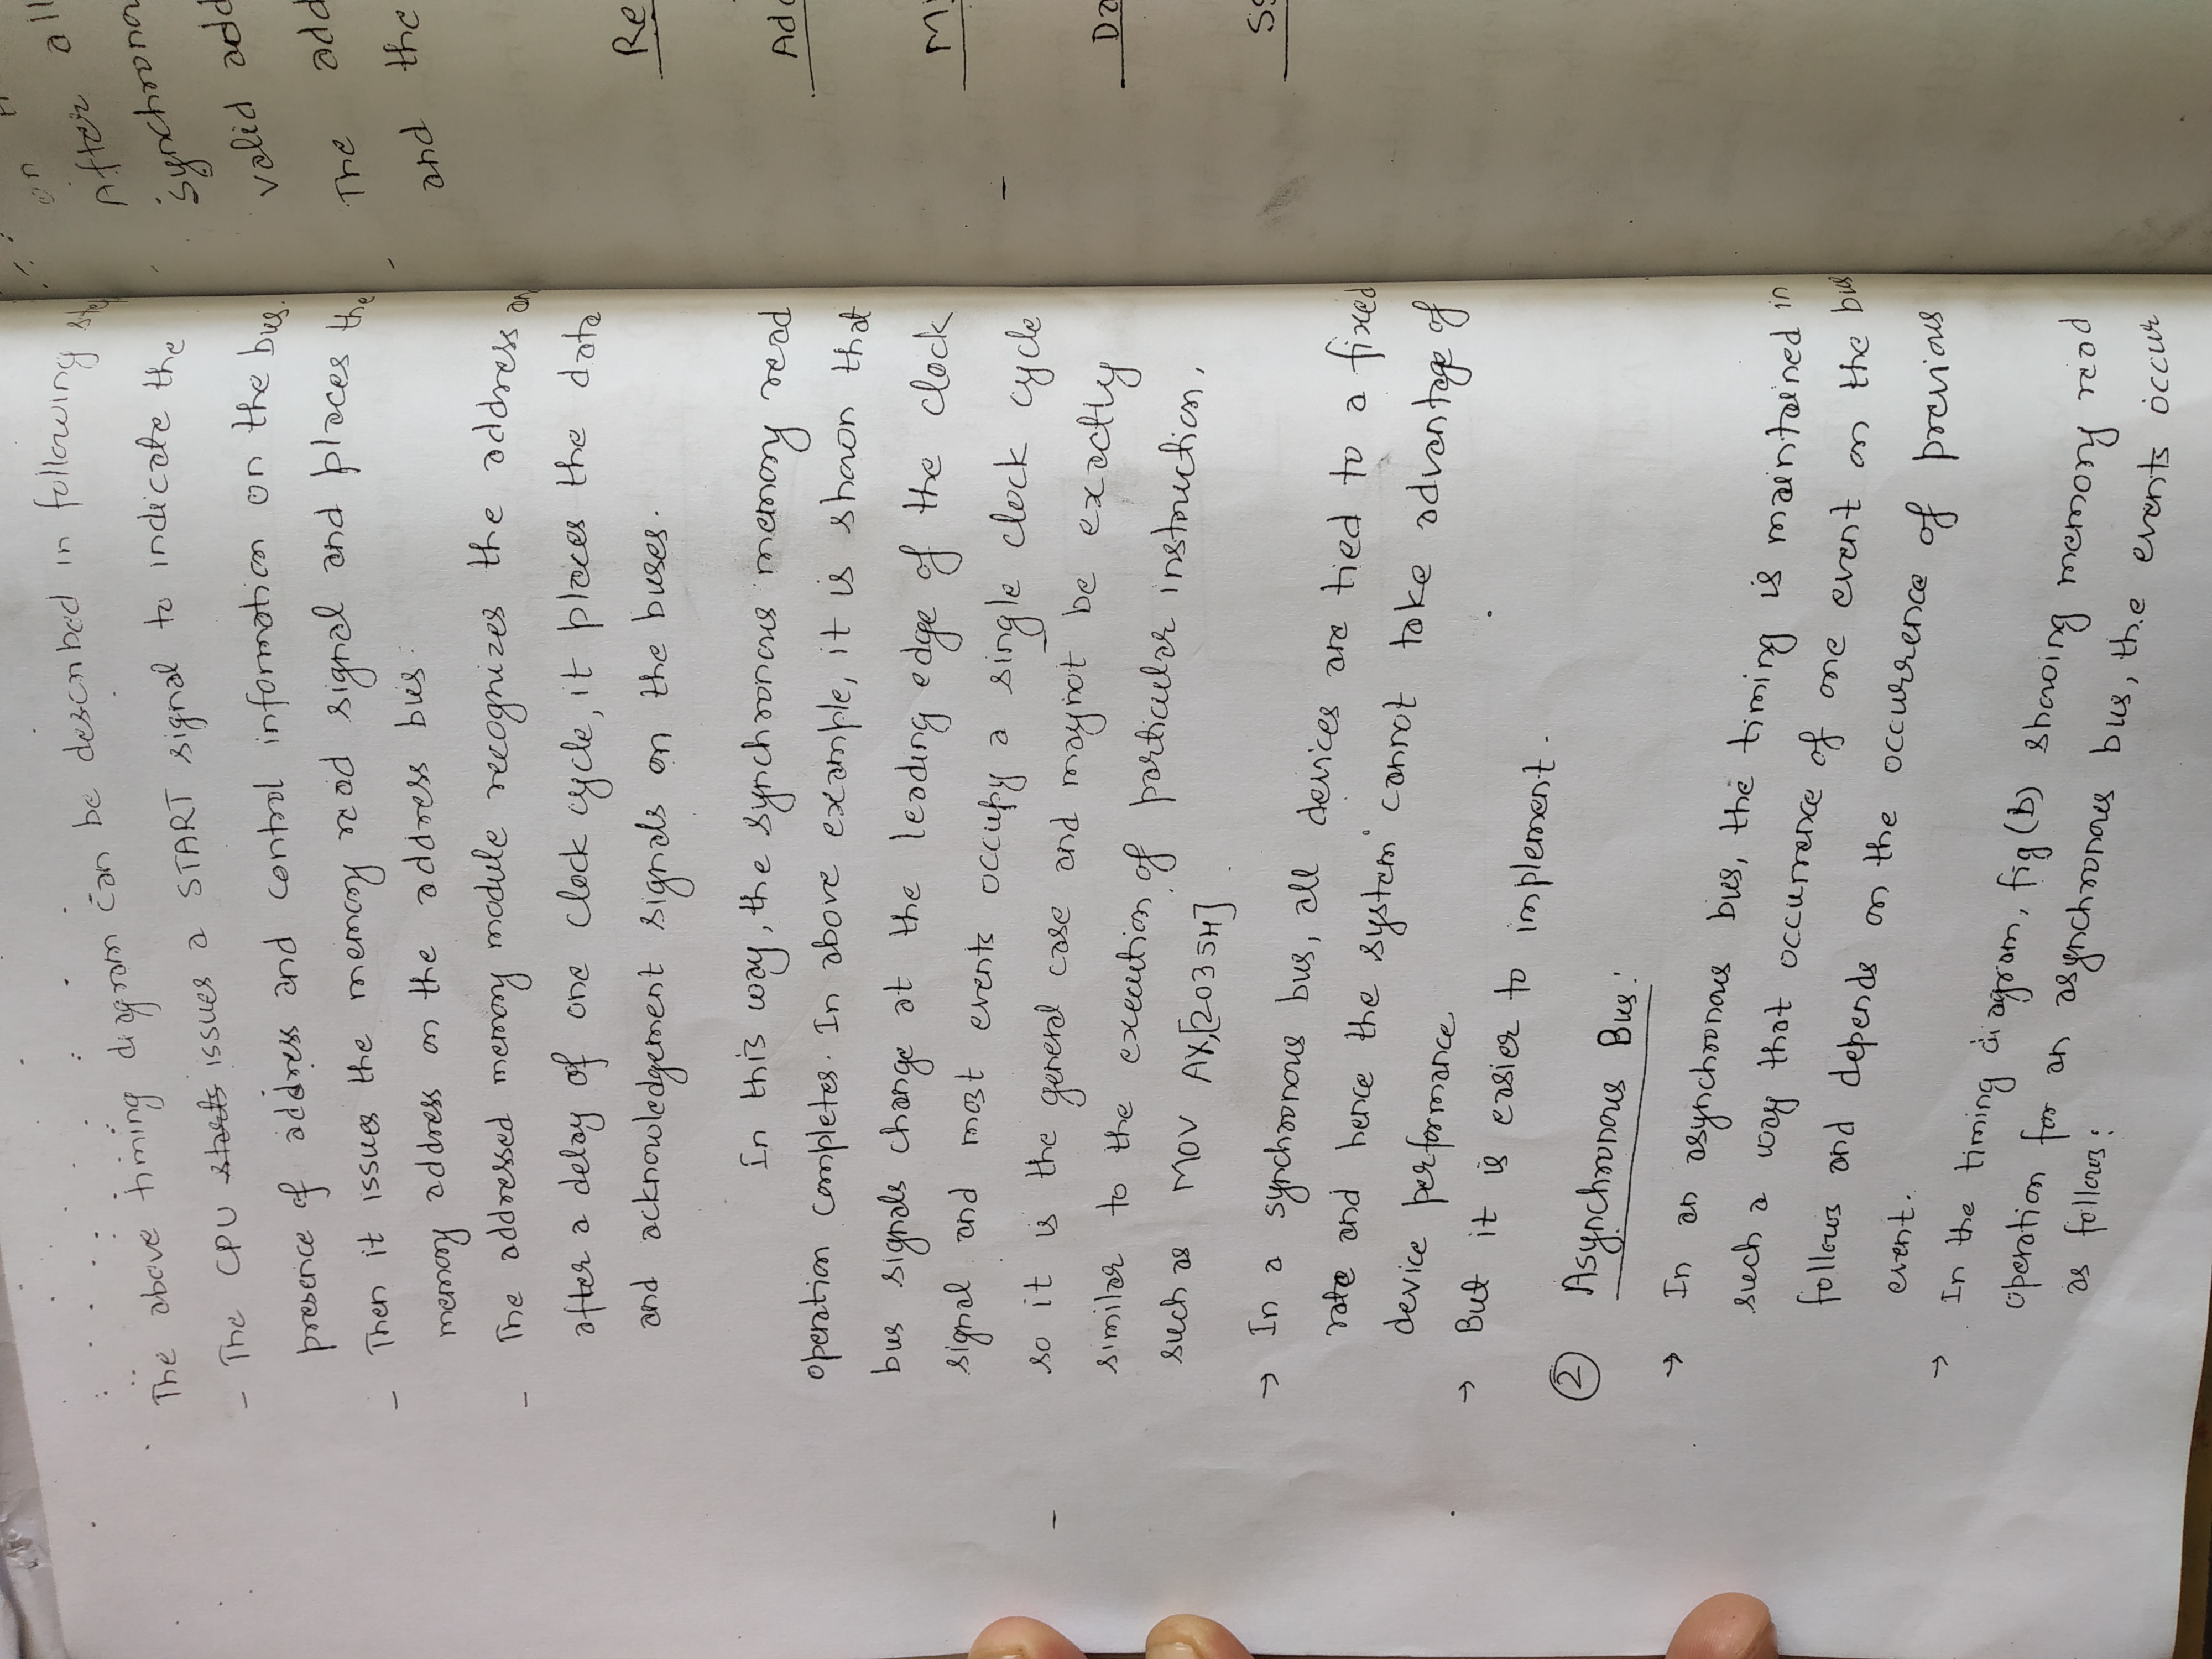 The above timing diagram can be described in following
- The CPU starts issues a START signal to indicate the
presence of address and control information on the bus.
- Then it issues the memory read signal and places the
memory address on the address bus.
- The addressed memory module recognizes the address
after a delay of one clock cycle, it places the data
and acknowledgement signals on the buses.
In this way, the synchronous memory read
operation completes. In above example, it is shown that
bus signals change at the leading edge of the clock
signal and most events occupy a single clock cycle
so it is the general case and maynot be exactly
similar to the execution of particular instruction,
such as MOV AX,[2035H]
→ In a synchronous bus, all devices are tied to a fixed
rate and hence the system cannot take advantage of
device performance
→ But it is easier to implement.
② Asynchronous Bus:
→ In an asynchronous bus, the timing is maintained in
such a way that occurrence of one event on the bus
follows and depends on the occurrence of previous
event.
→ In the timing diagram, fig (b) showing memory read
operation for an asynchronous bus, the events occur
as follows:
on
After all
valid
The
and the